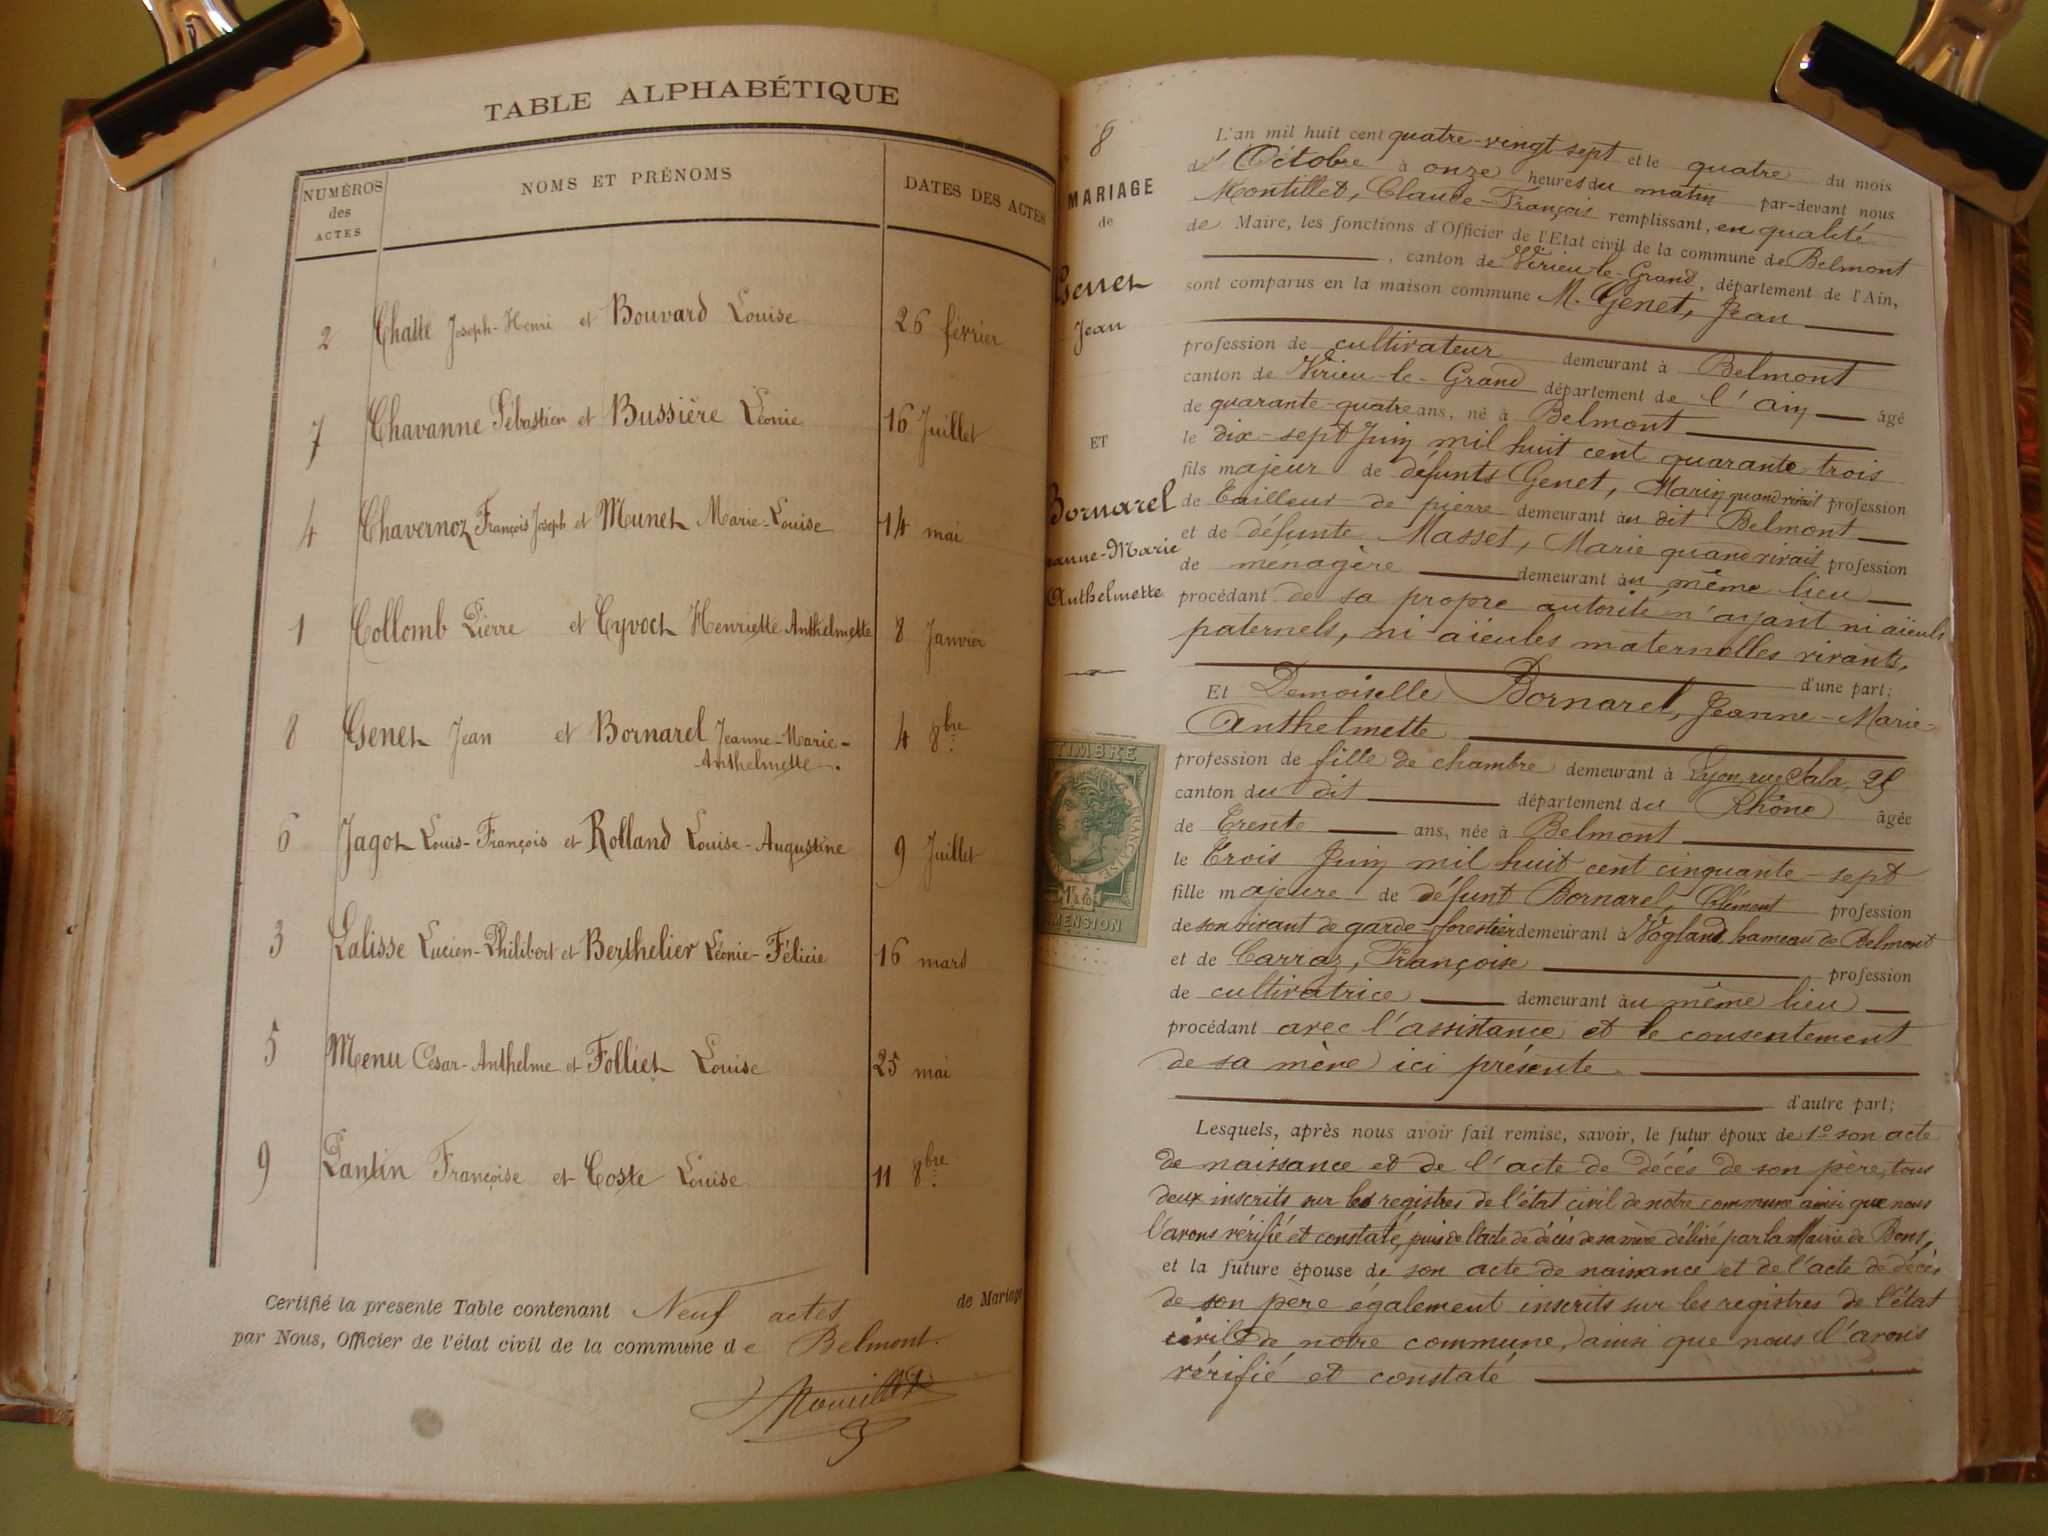 TABLE ALPHABÉTIQUE
NUMÉROS des ACTES
NOMS ET PRÉNOMS
DATES DES ACTES
2 Chatte Joseph-Henri et Bouvard Louise 26 février
7 Chavanne Sébastien et Bussière Léonie 16 Juillet
4 Chavernoz François Joseph et Munet Marie-Louise 14 mai
1 Collomb Pierre et Cyvoct Henriette Anthelmette 8 Janvier
8 Genet Jean et Bornarel Jeanne-Marie- 4 8bre
Anthelmette.
6 Jagot Louis-François et Rolland Louise-Augustine 9 Juillet
3 Lalisse Lucien-Philibert et Berthelier Léonie-Félicie 16 mars
5 Menu César-Anthelme et Folliet Louise 25 mai
9 Pantin Françoise et Coste Louise 11 8bre
Certifié la presente Table contenant Neuf actes de Mariage
par Nous, Officier de l'état civil de la commune de Belmont.
8
MARIAGE
de
Genet
Jean
ET
Bornarel
Jeanne-Marie
Anthelmette
TIMBRE
DIMENSION
L'an mil huit cent quatre-vingt-sept et le quatre du mois
d'Octobre à onze heures du matin par-devant nous
Montillet, Claude-François remplissant, en qualité
de Maire, les fonctions d'Officier de l'Etat civil de la commune de Belmont
, canton de Virieu-le-Grand, département de l'Ain,
sont comparus en la maison commune M. Genet, Jean
profession de cultivateur demeurant à Belmont
canton de Virieu-le-Grand département de l'ain âgé
de quarante-quatre ans, né à Belmont
le dix-sept Juin mil huit cent quarante-trois
fils majeur de défunts Genet, Marin quand vivait profession
de tailleur de pierre demeurant au dit Belmont
et de défunte Masset, Marie quand vivait profession
de ménagère demeurant au même lieu
procédant de sa propre autorité n'ayant ni aïeuls
paternels, ni aïeules maternelles vivants.
d'une part;
Et Demoiselle Bornarel, Jeanne-Marie-
Anthelmette
profession de fille de chambre demeurant à Lyon, rue Sala, 25
canton du dit département du Rhône âgée
de trente ans, née à Belmont
le trois Juin mil huit cent cinquante-sept
fille majeure de défunt Bornarel, Clément profession
de son vivant de garde-forestier demeurant à Vogland, hameau de Belmont
et de Carraz, Françoise profession
de cultivatrice demeurant au même lieu
procédant avec l'assistance et le consentement
de sa mère ici présente
d'autre part;
Lesquels, après nous avoir fait remise, savoir, le futur époux de 1º son acte
de naissance et de l'acte de décès de son père, tous
deux inscrits sur les registres de l'état civil de notre commune ainsi que nous
l'avons vérifié et constaté, puis de l'acte de décès de sa mère délivré par la Mairie de Bons,
et la future épouse de son acte de naissance et de l'acte de décès
de son père également inscrits sur les registres de l'état
civil de notre commune, ainsi que nous l'avons
vérifié et constaté